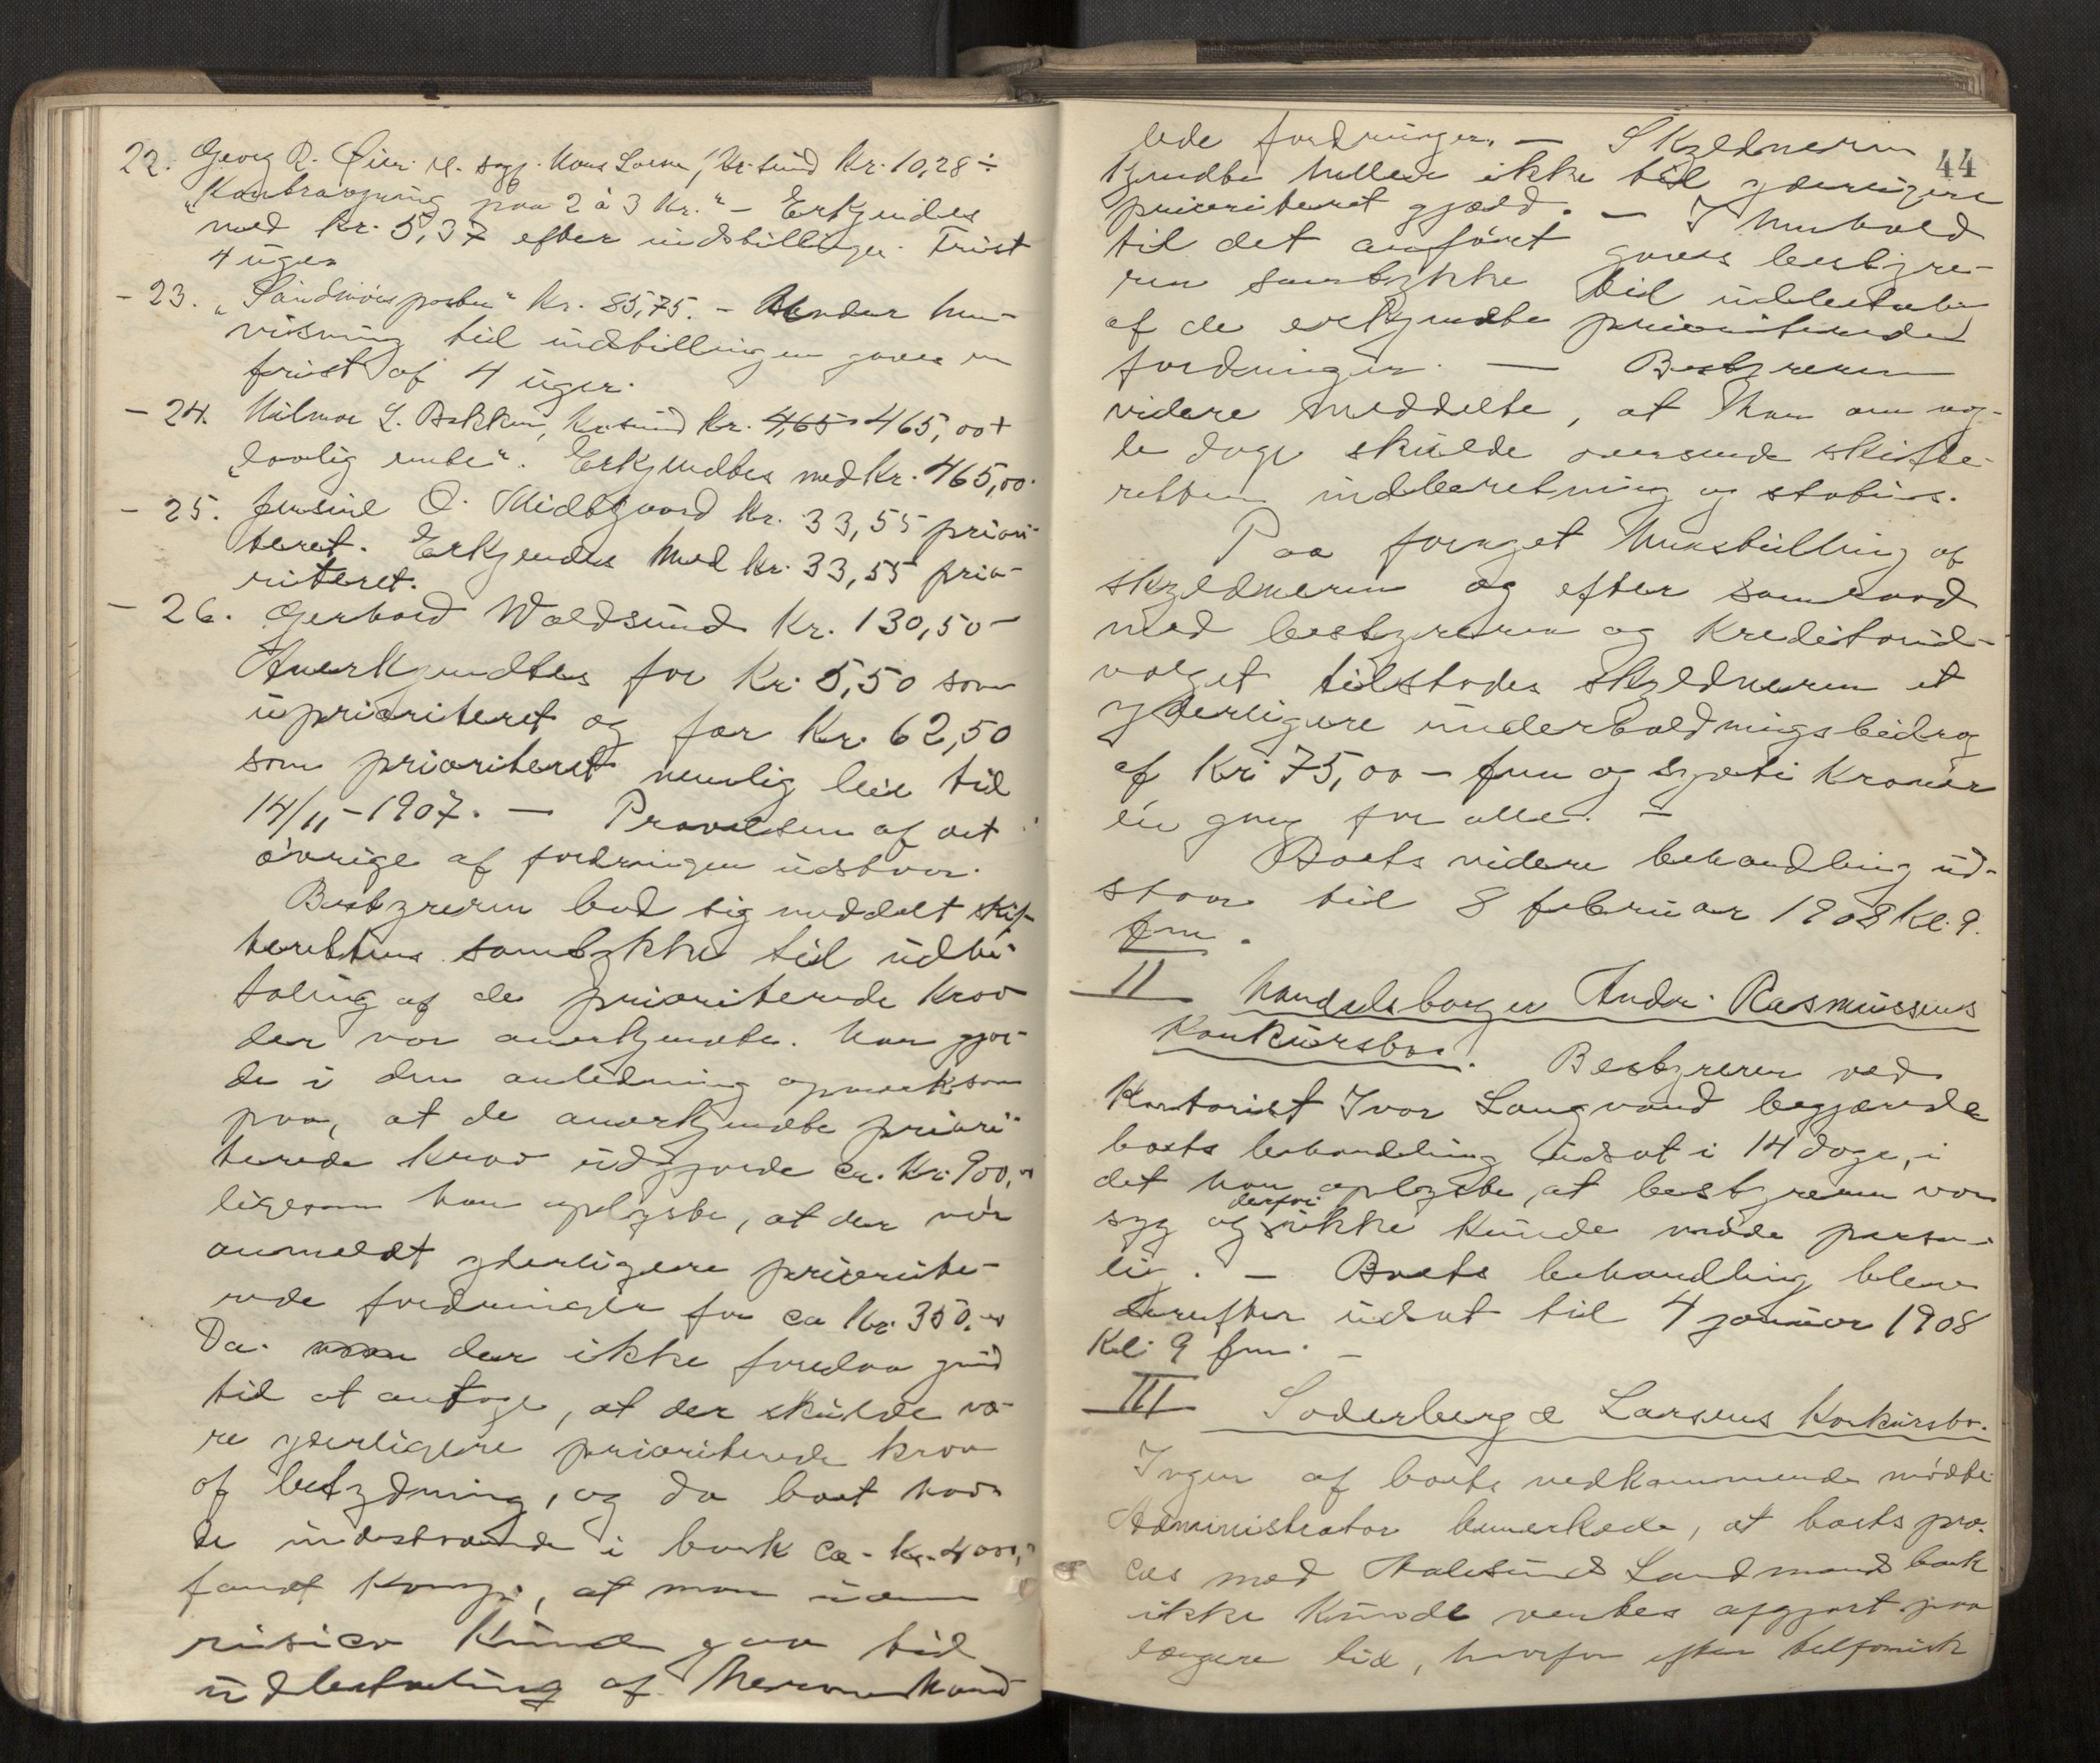 22. Georg R. Øien v. sagf. Hans Loenn, Kr.sund Kr. 10,28 ÷
"Kontraregning paa 2 à 3 Kr." – Erkjendes
med Kr. 5,37 efter indstillingen. Frist
4 uger
– 23. "Søndmørsposten" Kr. 85,75. – Under hen-
visning til indstillingen gaves en
frist af 4 uger.
– 24. Hilmar L. Bakken, Kr.sund Kr. 465,00 +
"lovlig rente". Erkjendtes med Kr. 465,00.
– 25. Jensine O. Midtgaard Kr. 33,55 priori-
teret. Erkjendes med Kr. 33,55 prio-
riteret.
– 26. Gerhard Waldsund Kr. 130,50 –
Anerkjendtes for Kr. 5,50 som
uprioriteret og for Kr. 62,50
som prioriteret nemlig leie til
14/11 – 1907. – Prøvelsen af det
øvrige af fordringen udstaar.
Bestyreren bad sig meddelt skif-
terettens samtykke til udbe-
taling af de prioriterede krav
der var anerkjendte. Han gjor-
de i den anledning opmerksom
paa, at de anerkjendte priori-
terede krav udgjorde ca. Kr. 900,00
ligesom han oplyste, at der var
anmeldt yderligere priorite-
rede fordringer for ca Kr. 350,00
Da der ikke forelaa grund
til at antage, at der skulde væ-
re yderligere prioriterede krav
af betydning, og da boet hav-
de indestaaende i bank ca. Kr. 4000,00
fandt at man uden
risico kunde gaa til
udbetaling af heromhand-
44
lede fordringer. – Skyldneren
kjendte heller ikke til yderligere
prioriteret gjæld. – I henhold
til det anførte gaves bestyre-
ren samtykke til udbetaling
af de erkjendte prioriterede
fordringer. – Bestyreren
videre meddelte, at han om nog-
le dage skulde oversende skifte-
retten indberetning og status.
Paa foraget henstilling af
skyldneren og efter samraad
med bestyreren og kreditorud-
valget tilstodes skyldneren et
yderligere underholdningsbidrag
af Kr. 75,00 – fem og sytti Kroner
én gang for alle. –
Boets videre behandling ud-
staar til 8 februar 1908 Kl. 9.
fm.
II Handelsborger Andr. Rasmussens
Konkursbo. Bestyreren ved
Kontorist Ivar Langvand begjærede
boets behandling udsat i 14 dage, i
det han oplyste, at bestyreren var
syg og derfor ikke kunde møde person-
lig. – Boets behandling blev
derefter udsat til 4 januar 1908
Kl. 9 fm. –
III Søderberg & Larsens Konkursbo.
Ingen af boets vedkommende mødte.
Administrator bemerkede, at boets pro-
ces med Aalesunds Landmandsbank
ikke kunde ventes afgjort paa
længere tid, hvorfor efter telefonisk